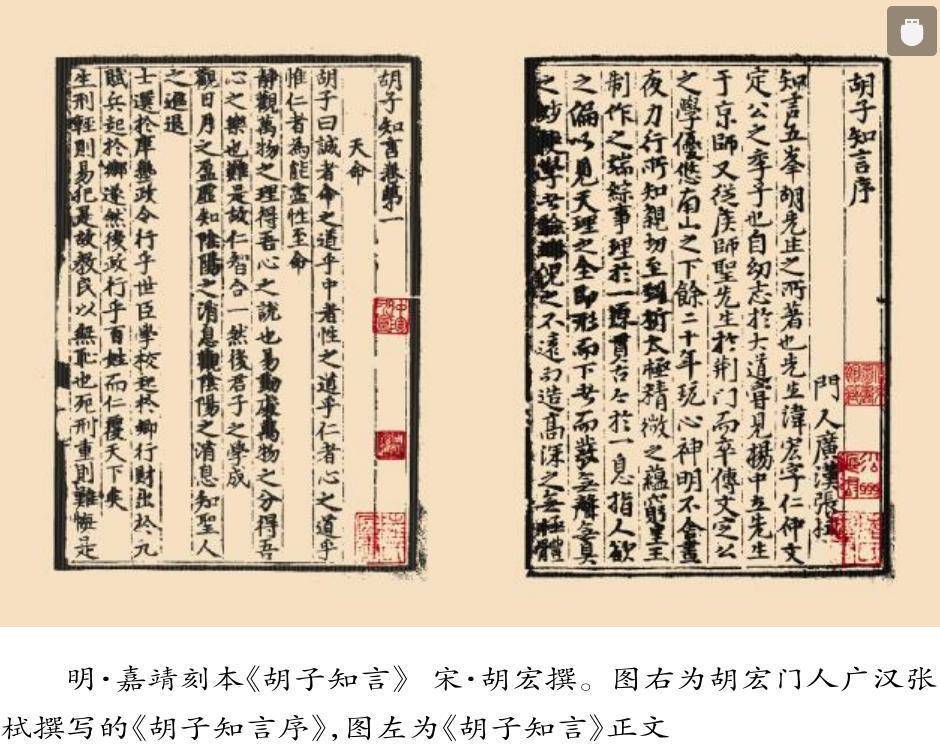 胡子知言序
門人廣漢張栻
知言五峯胡先生之所著也先生諱宏字仁仲文
定公之季子也自幼志於大道嘗見楊中立先生
于京師又從侯師聖先生於荆门而卒傳文定公
之學優悠南山之下餘二十年玩心神明不舍晝
夜力行所知親切至到析太極精微之蘊窮皇王
制作之端綜事理於一源貫古今於一息指人欲
之偏以見天理之全即形而下者而發無聲無臭
之妙使學者驗端倪之不遠而造高深之無極體
胡子知言卷第一
天命
胡子曰誠者命之道乎中者性之道乎仁者心之道乎
惟仁者為能盡性至命
静觀萬物之理得吾心之説也易動處萬物之分得吾
心之樂也難是故仁智合一然後君子之學成
觀日月之盈虛知陰陽之消息觀陰陽之消息知聖人
之進退
士選於庠塾政令行乎世臣學校起於鄉行財出於九
賦兵起於鄉遂然後政行乎百姓而仁覆天下矣
生刑輕則易犯是故教民以無恥也死刑重則難悔是
明·嘉靖刻本《胡子知言》 宋·胡宏撰。图右为胡宏门人广汉张
栻撰写的《胡子知言序》,图左为《胡子知言》正文